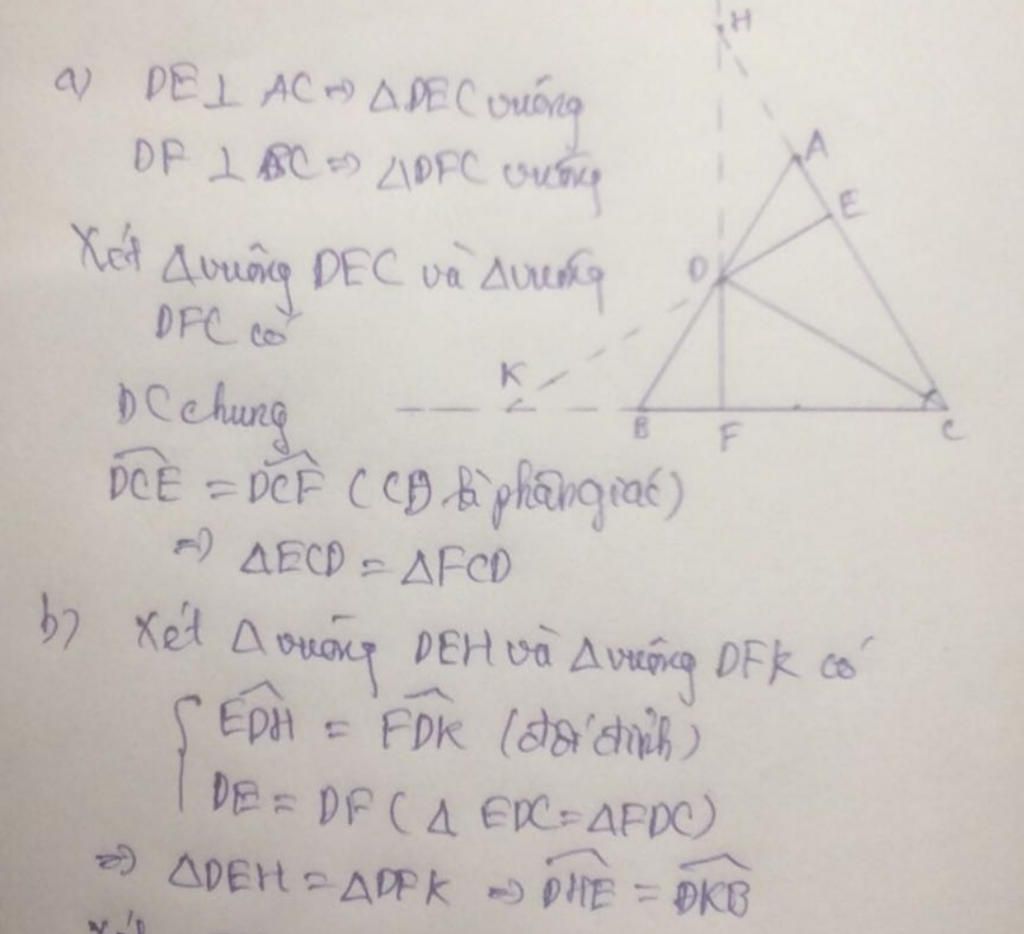 a) DE ⊥ AC => ΔDEC vuông
DF ⊥ BC => ΔDFC vuông
Xét Δvuông DEC và Δvuông
DFC có
DC chung
\widehat{DCE} = \widehat{DCF} (CD là phân giác)
=> ΔECD = ΔFCD
b) Xét Δ vuông DEH và Δ vuông DFK có
{ \widehat{EDH} = \widehat{FDK} (đối đỉnh)
DE = DF (Δ EDC = ΔFDC)
=> ΔDEH = ΔDFK => \widehat{DHE} = \widehat{DKB}
H
A
E
D
K
B
F
C